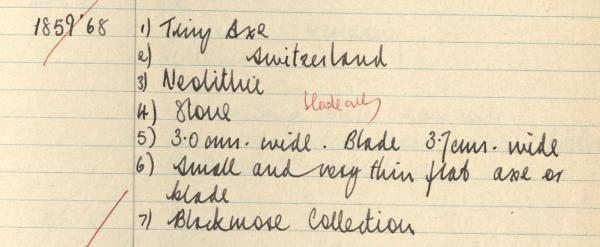 1859'68 1) Tiny Axe
2) Switzerland
3) Neolithic
4) Stone blade only
5) 3.0 cms. wide. Blade 3.7 cms. wide
6) Small and very thin flat axe or
blade
7) Blackmore Collection